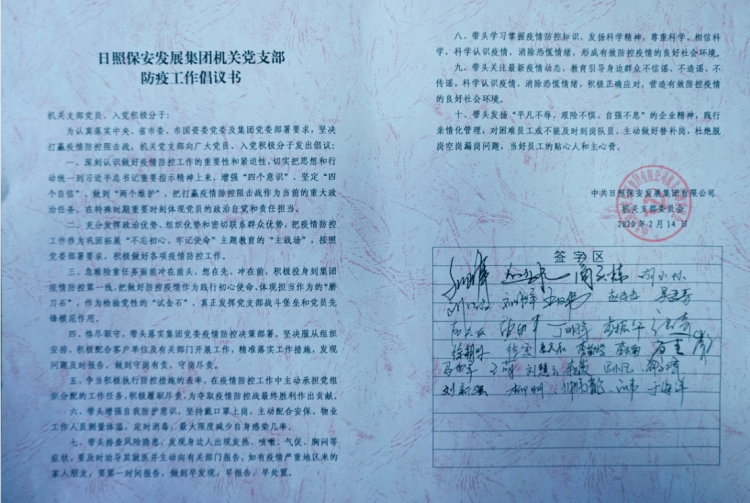 日照保安发展集团机关党支部
防疫工作倡议书
机关支部党员、入党积极分子：
为认真落实中央、省市委、市国资委党委及集团党委部署要求，坚决
打赢疫情防控阻击战，机关党支部向广大党员、入党积极分子发出倡议：
一、深刻认识做好疫情防控工作的重要性和紧迫性，切实把思想和行
动统一到习近平总书记重要指示精神上来，增强“四个意识”、坚定“四
个自信”、做到“两个维护”，把打赢疫情防控阻击战作为当前的重大政
治任务，在特殊时期重要时刻体现党员的政治自觉和责任担当。
二、充分发挥政治优势、组织优势和密切联系群众优势，把疫情防控
工作作为巩固拓展“不忘初心、牢记使命”主题教育的“主战场”，按照
党委部署要求，积极做好各项疫情防控工作。
三、急难险重任务面前冲在前头，想在先、冲在前，积极投身到集团
疫情防控第一线，把做好疫情防控作为践行初心使命、体现担当作为的“磨
刀石”，作为检验党性的“试金石”，真正发挥党支部战斗堡垒和党员先
锋模范作用。
四、恪尽职守，带头落实集团党委疫情防控决策部署，坚决服从组织
安排，积极配合客户单位及有关部门开展工作，精准落实工作措施，发现
问题及时报告，做到守岗有责，守岗尽责。
五、争当积极执行防控措施的表率，在疫情防控工作中主动承担党组
织分配的工作任务，积极履职尽责，为夺取疫情防控战最终胜利作出贡献。
六、带头增强自我防护意识，坚持戴口罩上岗，主动配合安保、物业
工作人员测量体温，定时消毒，最大限度减少自身感染几率。
七、带头排查风险隐患，发现身边人出现发热、咳嗽、气促、胸闷等
症状，要及时劝导其就医并主动向有关部门报告，如有疫情严重地区来的
家人朋友，要第一时间报告，做到早发现，早报告，早处置。
八、带头学习掌握疫情防控知识，发扬科学精神，尊重科学、相信科
学，科学认识疫情，消除恐慌情绪，形成有效防控疫情的良好社会环境。
九、带头关注最新疫情动态，教育引导身边群众不信谣、不造谣、不
传谣，科学认识疫情，消除恐慌情绪，积极正确应对，营造有效防控疫情
的良好社会环境。
十、带头发扬“平凡不辱、艰险不惧、自强不息”的企业精神，践行
亲情化管理，对困难员工或不能及时到岗队员，主动做好替补岗，杜绝脱
岗空岗漏岗问题，当好员工的贴心人和主心骨。
中共日照保安发展集团有限公司
机关支部委员会
2020年2月14日
签字区